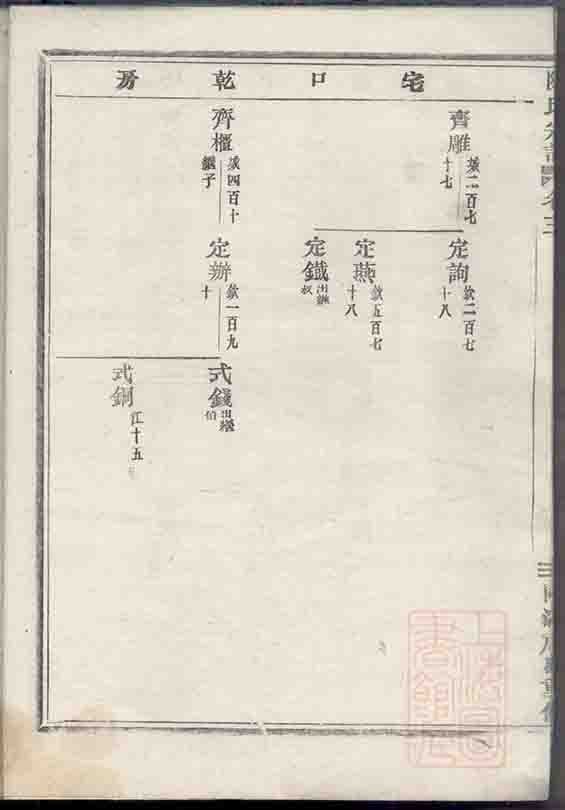 宅口乾房
齊雕
荿二百七十七
定詢
欽二百七十八
定燕
欽五百七十八
定鐵
出繼叔
齊櫃
荿四百十
繼子
定辦
欽一百九十
式錢
出繼伯
式銅
江十五
上海圖書館藏